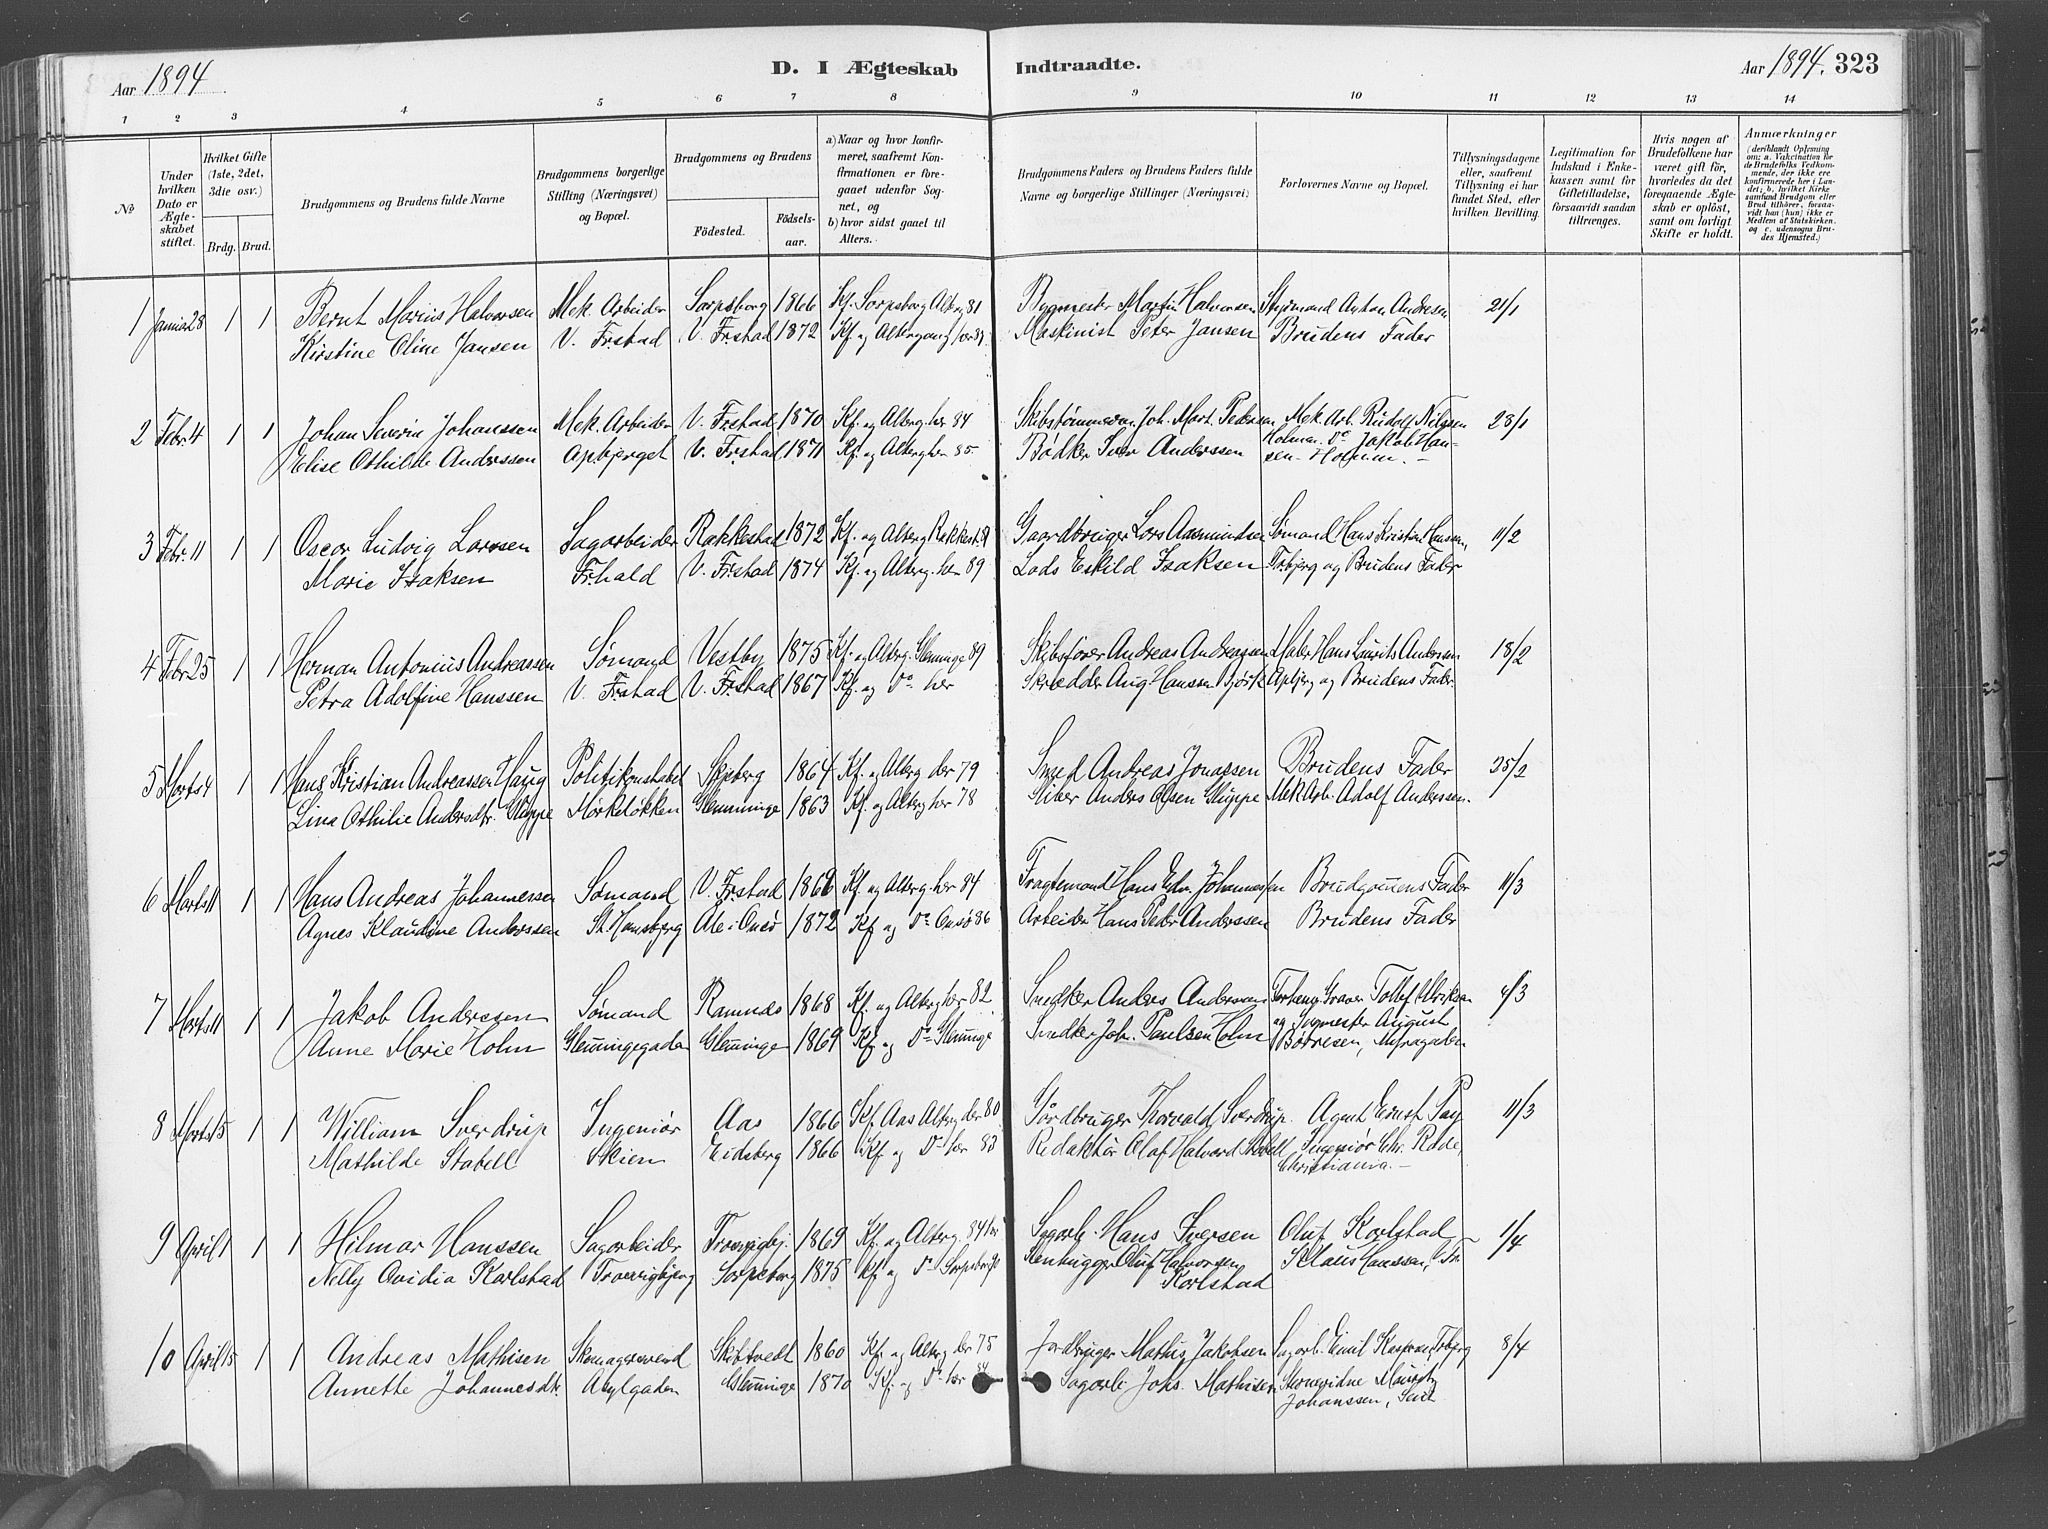 Aar 1894
D. I Ægteskab
Indtraadte.
Aar 1894. 323
1 2 3 4 5 6 7 8 9 10 11 12 13 14
№
Under hvilken Dato er Ægteskabet stiftet.
Hvilket Gifte (1ste, 2det, 3die osv.)
Brdg. Brud.
Brudgommens og Brudens fulde Navne
Brudgommens borgerlige Stilling (Næringsvei) og Bopæl.
Brudgommens og Brudens
Fødested.
Fødselsaar.
a) Naar og hvor konfirmeret, saafremt Konfirmationen er foregaaet udenfor Sognet, og
b) hvor sidst gaaet til Alters.
Brudgommens Faders og Brudens Faders fulde Navne og borgerlige Stillinger (Næringsvei)
Forlovernes Navne og Bopæl.
Tillysningsdagene eller, saafremt Tillysning ei har fundet Sted, efter hvilken Bevilling.
Legitimation for Indskud i Enkekassen samt for Giftetilladelse, forsaavidt saadan tiltrænges.
Hvis nogen af Brudefolkene har været gift før, hvorledes da det foregaaende Ægteskab er opløst, samt om lovligt Skifte er holdt.
Anmærkninger
(deriblandt Oplysning om: a. Vaccination for de Brudefolks Vedkommende, der ikke ere konfirmerede her i Landet; b. hvilket Kirkesamfund Brudgom eller Brud tilhører, forsaavidt han (hun) ikke er Medlem af Statskirken, og c. udensogns Brudes Hjemsted.)
1 Januar 28 1 1 Bernt Marius Halvorsen Mek. Arbeider Sarpsborg 1866 Kf. Sarpsborg Alterg 81 Bygmester Martin Halvorsen Styrmand Anton Andresen 21/1
Kirstine Oline Jansen V. Frstad V. Frstad 1872 Kf. og Altergang her Maskinist Peter Jansen Brudens Fader
2 Febr. 4 1 1 Johan Severin Johanssen Mek. Arbeider V. Frstad 1870 Kf. og Alterg. her 84 Skibstømmerm. Joh. Mart. Pedersen Mek. Arb. Rudolf Nilssen 28/1
Elise Othilde Anderssen Apbjerget V. Frstad 1871 Kf. og Alterg her 85 Bødker Iver Anderssen Holmen. Do Jakob Hansen Holmen.
3 Febr. 11 1 1 Oscar Ludvig Larssen Sagarbeider Rakkestad 1872 Kf. og Alterg Rakkest. Gaardbruger Lars Aasmundsen Sømand Hans Kristian Hansen, 11/2
Marie Isaksen Frhald V. Frstad 1874 Kf. og Alterg. her 89 Lods Eskild Isaksen og Brudens Fader
4 Febr 25 1 1 Herman Antonius Andreassen Sømand Vestby 1875 Kf. og Alterg. Glemminge 89 Skibsfører Andreas Andreassen Maler Hans Laurits Andersen 18/2
Petra Adolfine Hanssen V. Frstad V. Frstad 1867 Kf. og Do her Skrædder Aug. Hanssen Apbjerg og Brudens Fader
5 Marts 4 1 1 Hans Kristian Andreassen Haug Politikonstabel Skjeberg 1864 Kf. og Alterg der 79 Smed Andreas Jonassen Brudens Fader 25/2
Lina Othilie Andersdtr. Gluppe Mørkeløkken Glemminge 1863 Kf. og Alterg her 78 Sliber Anders Olsen Gluppe Mek Arb. Adolf Anderssen
6 Marts 11 1 1 Hans Andreas Johannessen Sømand V. Frstad Kf. og Alterg. her 84 Fragtemand Hans Edv. Johannessen Brudgommens Fader 11/3
Agnes Klaudine Anderssen St. Hansbjerg Ale i Onsø 1872 Kf og Do Onsø 86 Arbeider Hans Peder Anderssen Brudens Fader
7 Marts 11 1 1 Jakob Andersen Sømand Ramnes 1868 Kf. og Alterg her 82 Snedker Andres Andersen Graver Tollef Ulriksen 4/3
Anne Marie Holm Glemmingegaden Glemminge 1869 Kf og Do Glemminge Snedker Joh. Paulsen Holm og August Børresen,
8 Marts 15 1 1 William Sverdrup Ingeniør Aas 1866 Kf. Aas Alterg der 80 Jordbruger Thorvald Sverdrup. Agent Ernst Pay 11/3
Mathilde Stabell Skien Eidsberg 1866 Kf og Do her 83 Redaktør Olaf Halvard Stabell Ingeniør Chr. Rode, Christiania.
9 April 1 1 1 Hilmar Hanssen Sagarbeider Trosvigbj. 1869 Kf. og Alterg. 84 her Sagarb. Hans Iversen Oluf Karlstad 1/4
Nelly Ovidia Karlstad Trosvigbjerg Sarpsborg 1875 Kf og Do Sarpsborg 90 Stenhugger Oluf Halvorsen Karlstad Klaus Hanssen,
10 April 15 1 1 Andreas Mathisen Skomagersvend Skibtvedt 1860 Kf. og Alterg der 75 Jordbruger Mathis Jakobsen Sagarb. Emil Kaspersen, 8/4
Annette Johannesdtr. Asylgaden Glemminge 1870 Kf. og Do her 84 Sagarb. Johs. Mathisen Mauritz Johanssen,